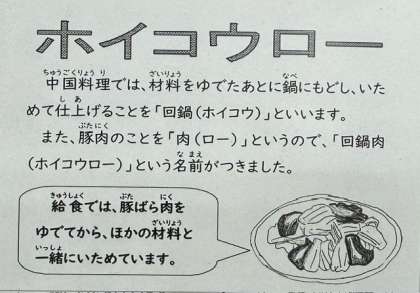 ホイコウロー
中国料理では、材料をゆでたあとに鍋にもどし、いた
めて仕上げることを「回鍋(ホイコウ)」といいます。
また、豚肉のことを「肉(ロー)」というので、「回鍋肉
(ホイコウロー)」という名前がつきました。
給食では、豚ばら肉を
ゆでてから、ほかの材料と
一緒にいためています。